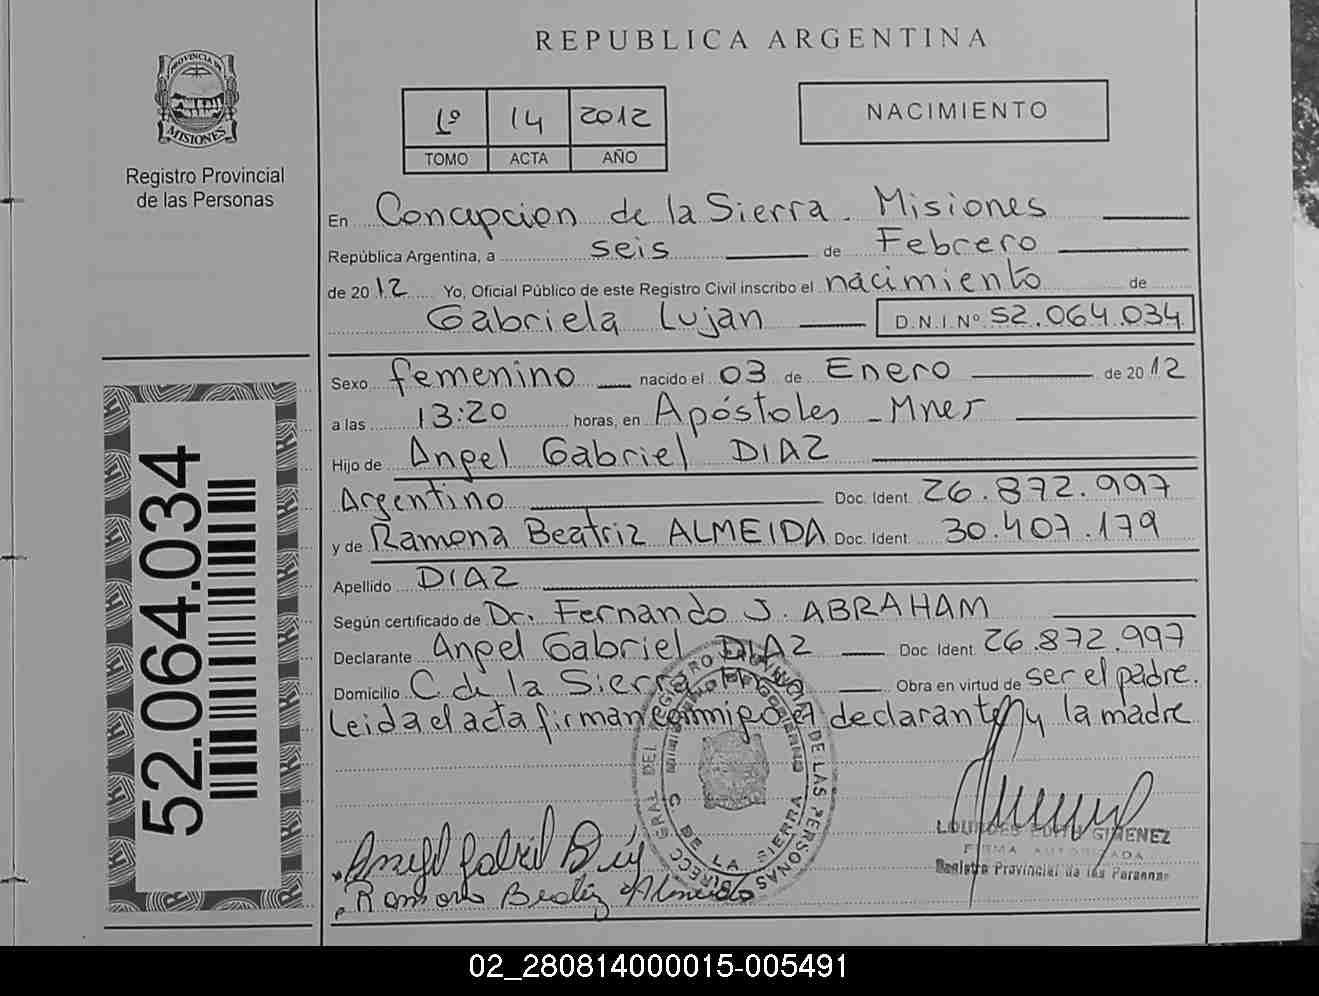 REPUBLICA ARGENTINA
PROVINCIA DE
MISIONES
Registro Provincial
de las Personas
1º 14 2012
TOMO ACTA AÑO
NACIMIENTO
En Concepcion de la Sierra. Misiones
República Argentina, a seis de Febrero
de 2012 Yo, Oficial Público de este Registro Civil inscribo el nacimiento de
Gabriela Lujan D.N.I.Nº 52.064.034
Sexo femenino nacido el 03 de Enero de 2012
a las 13:20 horas, en Apóstoles - Mnes
Hijo de Angel Gabriel DIAZ
Argentino Doc. Ident. 26.872.997
y de Ramona Beatriz ALMEIDA Doc. Ident. 30.407.179
Apellido DIAZ
Según certificado de Dr. Fernando J. ABRAHAM
Declarante Angel Gabriel DIAZ Doc. Ident. 26.872.997
Domicilio C. de la Sierra Obra en virtud de ser el padre.
Leida el acta firman conmigo el declarante y la madre
52.064.034
C. DE LA SIERRA
DE LAS PERSONAS
Angel Gabriel Diaz
Ramona Beatriz Almeida
LOURDES EDITH GIMENEZ
FIRMA AUTORIZADA
Registro Provincial de las Personas
02_280814000015-005491